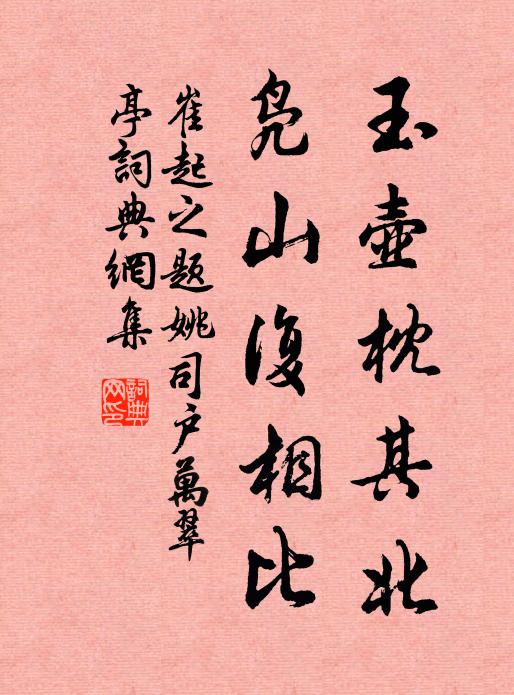 玉壺枕其北
凫山復相比
崔起之題姚司户萬翠
亭詞典網集
詞典
网印